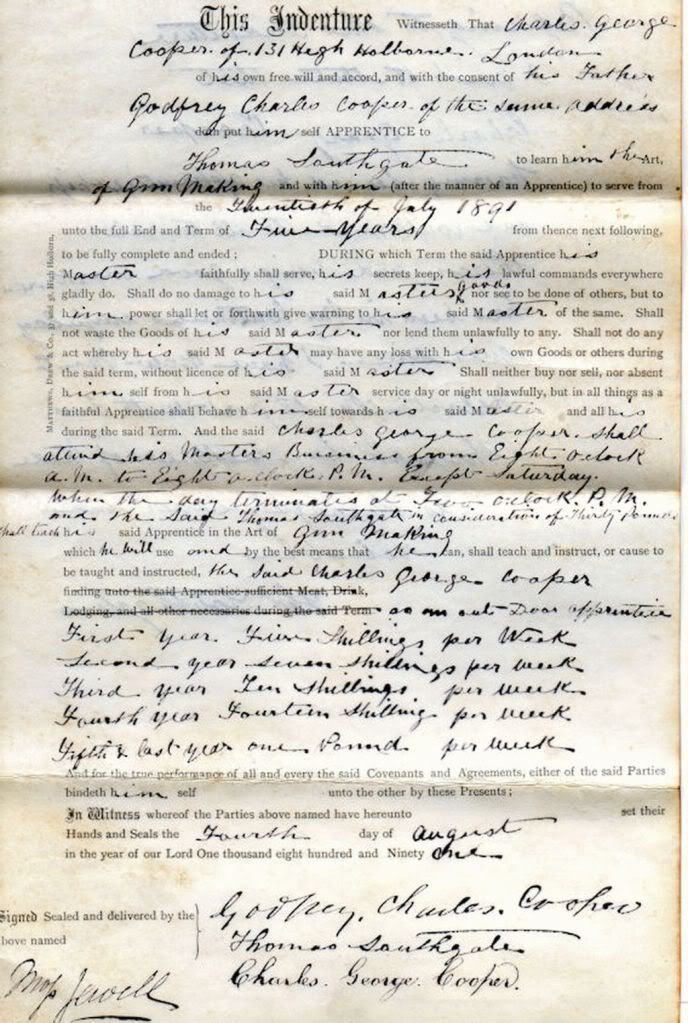 This Indenture Witnesseth That Charles. George
Cooper. of. 131 High Holborne. London
of his own free will and accord, and with the consent of his Father
Godfrey Charles Cooper. of the same address
doth put him self APPRENTICE to
Thomas Southgate to learn him the Art,
of Gun Making and with him (after the manner of an Apprentice) to serve from
the Twentieth of July 1891
unto the full End and Term of Five Years, from thence next following,
to be fully complete and ended; DURING which Term the said Apprentice his
Master faithfully shall serve, his secrets keep, his lawful commands everywhere
gladly do. Shall do no damage to his said Masters goods nor see to be done of others, but to
him power shall let or forthwith give warning to his said Master of the same. Shall
not waste the Goods of his said Master nor lend them unlawfully to any. Shall not do any
act whereby his said Master may have any loss with his own Goods or others during
the said term, without licence of his said Master Shall neither buy nor sell, nor absent
him self from his said Master service day or night unlawfully, but in all things as a
faithful Apprentice shall behave him self towards his said Master and all his
during the said Term. And the said Charles George Cooper. shall
attend his Masters Business from Eight o.clock
A.M. to Eight o.clock. P.M. Except Saturday.
When the day terminates at Two o.clock. P.M.
and the said Thomas Southgate in consideration of Thirty Pounds
shall teach his said Apprentice in the Art of Gun Making
which he will use and by the best means that he can, shall teach and instruct, or cause to
be taught and instructed, the said Charles George Cooper
finding unto the said Apprentice sufficient Meat, Drink,
Lodging, and all other necessaries during the said Term as an out Door apprentice
First Year Five Shillings per Week
Second year seven shillings per week
Third year Ten shillings per week
Fourth year Fourteen shilling per week
Fifth & last year one Pound per week
And for the true performance of all and every the said Covenants and Agreements, either of the said Parties
bindeth him self unto the other by these Presents;
In Witness whereof the Parties above named have hereunto set their
Hands and Seals the Fourth day of august
in the year of our Lord One thousand eight hundred and Ninety One
Signed Sealed and delivered by the
above named
Godfrey. Charles. Cooper
Thomas Southgate
Charles. George. Cooper.
Jewell
Matthews, Drew & Co., 37 and 38, High Holborn.